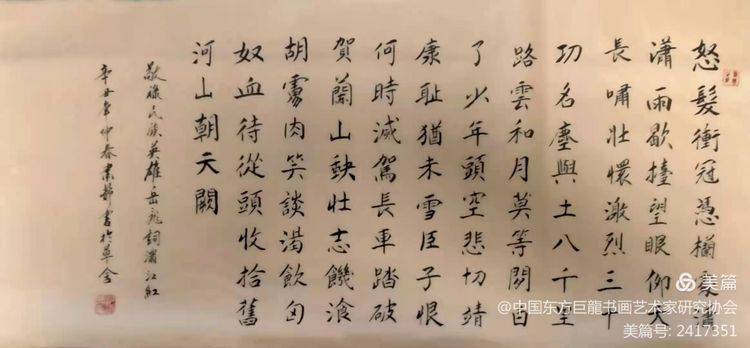 怒髮衝冠憑欄處瀟
瀟雨歇擡望眼仰天
長嘯壯懷激烈三十
功名塵與土八千里
路雲和月莫等閒白
了少年頭空悲切靖
康耻猶未雪臣子恨
何時滅駕長車踏破
賀蘭山缺壯志饑飡
胡虜肉笑談渴飲匈
奴血待從頭收拾舊
河山朝天闕
敬錄民族英雄岳飛詞滿江紅
辛丑年仲春書於草舍
美篇
@中国东方巨龍书画艺术家研究协会
美篇号: 2417351